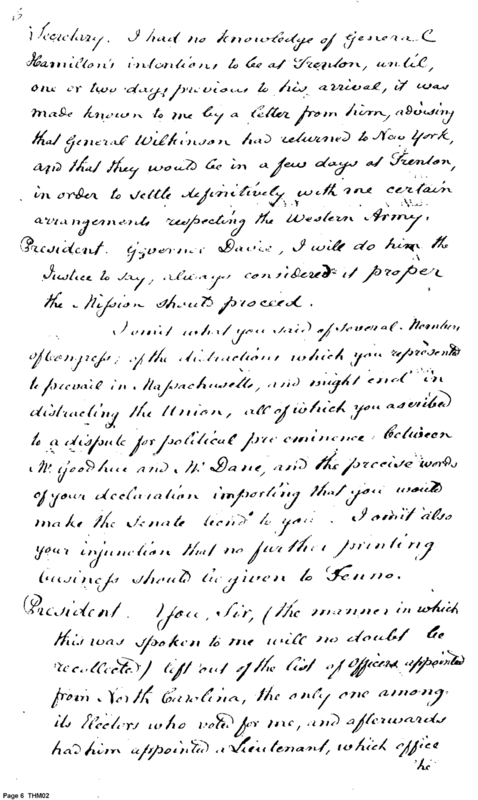 6
Secretary. I had no knowledge of General
Hamilton's intentions to be at Trenton, until,
one or two days previous to his arrival, it was
made known to me by a letter from him, advising
that General Wilkinson had returned to New York,
and that they would be in a few days at Trenton,
in order to settle definitively with me certain
arrangements respecting the Western Army.
President. Governor Davie, I will do him the
Justice to say, always considered it proper
the Mission should proceed.
I omit what you said of several Members
of Congress; of the distractions which you represented
to prevail in Massachusetts, and might end in
distracting the Union, all of which you ascribed
to a dispute for political pre eminence between
Mr. Goodhue and Mr. Dane, and the precise words
of your declaration importing that you would
make the Senate bend to you. I omit also
your injunction that no further printing
business should be given to Fenno.
President. You, Sir, (the manner in which
this was spoken to me will no doubt be
recollected) left out of the list of Officers appointed
from North Carolina, the only one among
its Electors who voted for me, and afterwards
had him appointed a Lieutenant, which office
he
Page 6 THM02